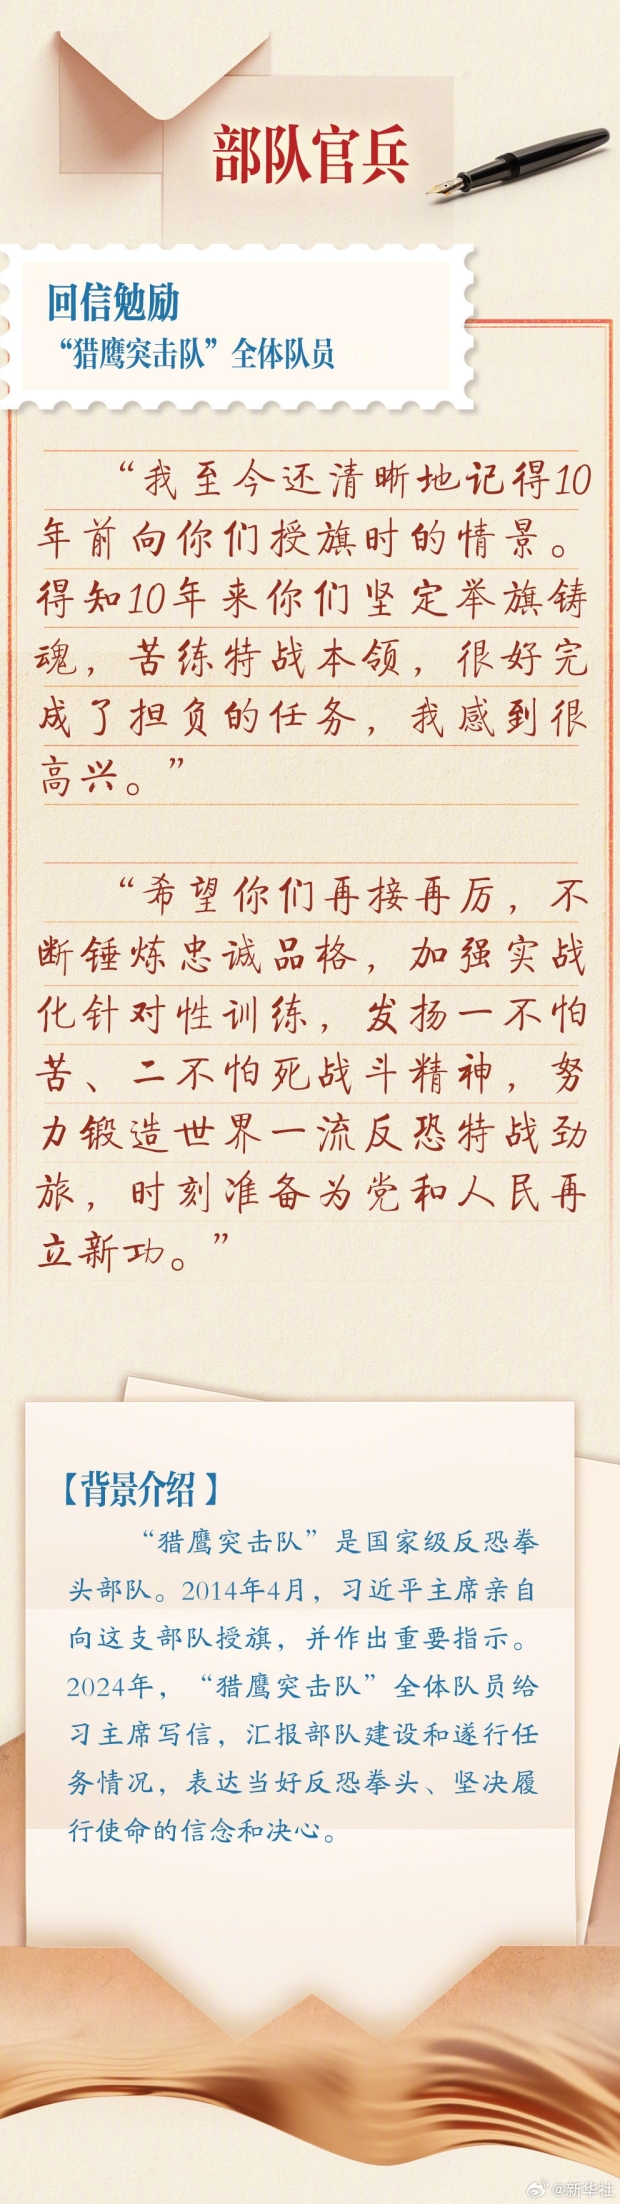 部队官兵
回信勉励
“猎鹰突击队”全体队员
“我至今还清晰地记得10
年前向你们授旗时的情景。
得知10年来你们坚定举旗铸
魂，苦练特战本领，很好完
成了担负的任务，我感到很
高兴。”
“希望你们再接再厉，不
断锤炼忠诚品格，加强实战
化针对性训练，发扬一不怕
苦、二不怕死战斗精神，努
力锻造世界一流反恐特战劲
旅，时刻准备为党和人民再
立新功。”
【背景介绍】
“猎鹰突击队”是国家级反恐拳
头部队。2014年4月，习近平主席亲自
向这支部队授旗，并作出重要指示。
2024年，“猎鹰突击队”全体队员给
习主席写信，汇报部队建设和遂行任
务情况，表达当好反恐拳头、坚决履
行使命的信念和决心。
@新华社